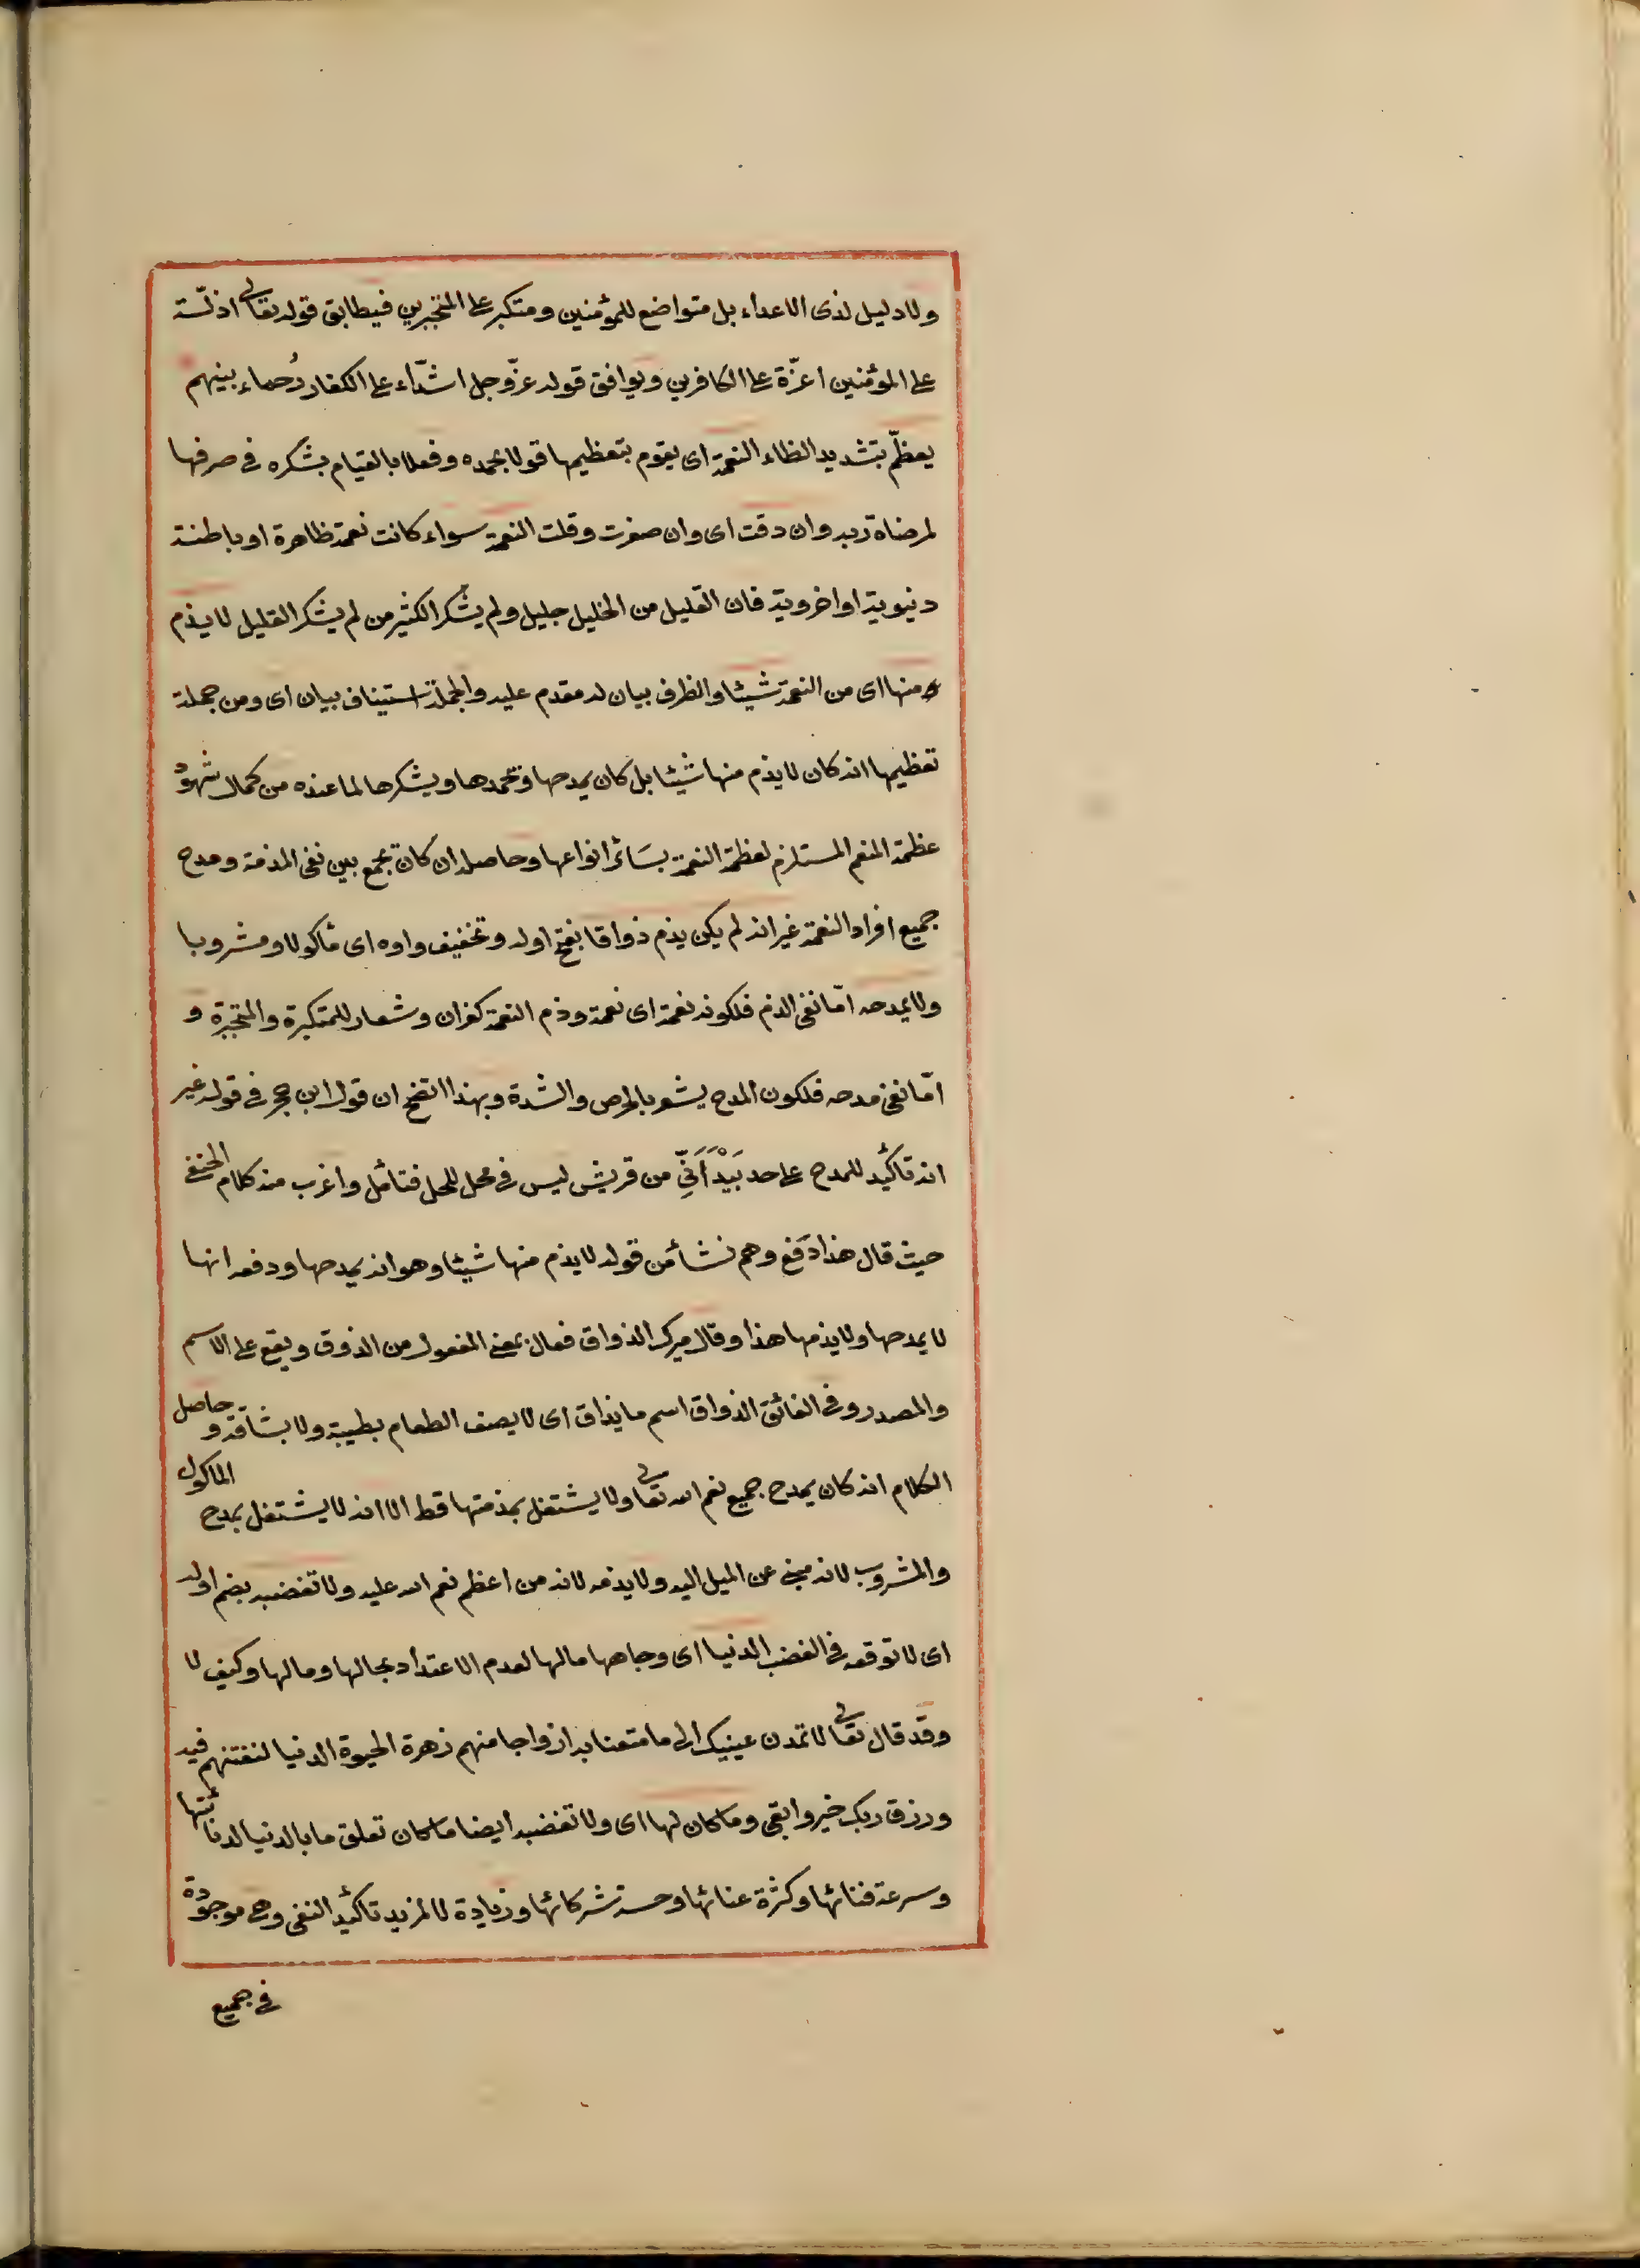 ولا دليل لذى الاعداء بل متواضع للمؤمنين ومتكبر على المتجبرين فيطابق قوله تعالى اذلّة
على المؤمنين اعزّة على الكافرين ويوافق قوله عزّوجل اشدّاء على الكفار رُحماء بينهم
يعظّم بتشديد الظاء النعمة اى يقوم بتعظيمها قولا بحمده وفعلا بالقيام بشكره فى صرفها
لمرضاة ربه وان دقت اى وان صغرت وقلت النعمة سواء كانت نعمة ظاهرة او باطنة
دنيوية او اخروية فان القليل من الخليل جليل ولم يشكر الكثير من لم يشكر القليل لا يذم
منها اى من النعمة شيئا والظرف بيان له مقدم عليه والجملة استيناف بيان اى ومن جملة
تعظيمها انه كان لا يذم منها شيئا بل كان يمدحها وتحمدها ويشكرها لما عنده من كمال شهود
عظمة المنعم المستلزم لعظمة النعمة بسَائر انواعها وحاصله ان كان تجمع بين نفى المذمة ومدح
جميع افراد النعمة غير انه لم يكن يذم ذواقا بفتح اوله وتخفيف واوه اى مأكولا ومشروبا
ولا يمدحه امّا نفى الذم فلكونه نعمة اى نعمة وذم النعمة كفران وشعار للمتكبرة والمتجبرة و
امّا نفى مدحه فلكون المدح يشعر بالحرص والشدة وبهذا اتضح ان قول ابن حجر فى قوله غير
انه تأكيد للمدح على حد بَيْدَ أَنِّي من قريش ليس فى محل للحل فتأمل واغرب منه كلام الحنفى
حيث قال هذا دَفع وهم نشأ من قوله لا يذم منها شيئا وهو انه يمدحها ودفعه انها
لا يمدحها ولا يذمها هذا وقال ميرك الذواق فعال بمعنى المفعول من الذوق ويقع على الاسم
والمصدر وفى الفائق الذواق اسم ما يذاق اى لا يصف الطعام بطيبة ولا بشاقة و حاصل
الكلام انه كان يمدح جميع نعم الله تعالى ولا يشتغل بمذمتها قط الا انه لا يشتغل بمدح الماكول
والمشروب لانه مبنى عن الميل اليه ولا يذمه لانه من اعظم نعم الله عليه ولا تغضبه بضم اوله
اى لا توقعه فى الغضب الدنيا اى وجاهها مالها لعدم الاعتداد بحالها ومالها وكيف لا
وقد قال تعالى لا تمدن عينيك الى ما متعنا به ازواجا منهم زهرة الحيوة الدنيا لنفتنهم فيه
ورزق ربك خير وابقى وما كان لها اى ولا تغضبه ايضا ما كان تعلق ما بالدنيا لدنائتها
وسرعة فنائها وكثرة عنائها وخسة شركائها وزيادة لا لمزيد تأكيد النفى وهى موجودة
فى جميع